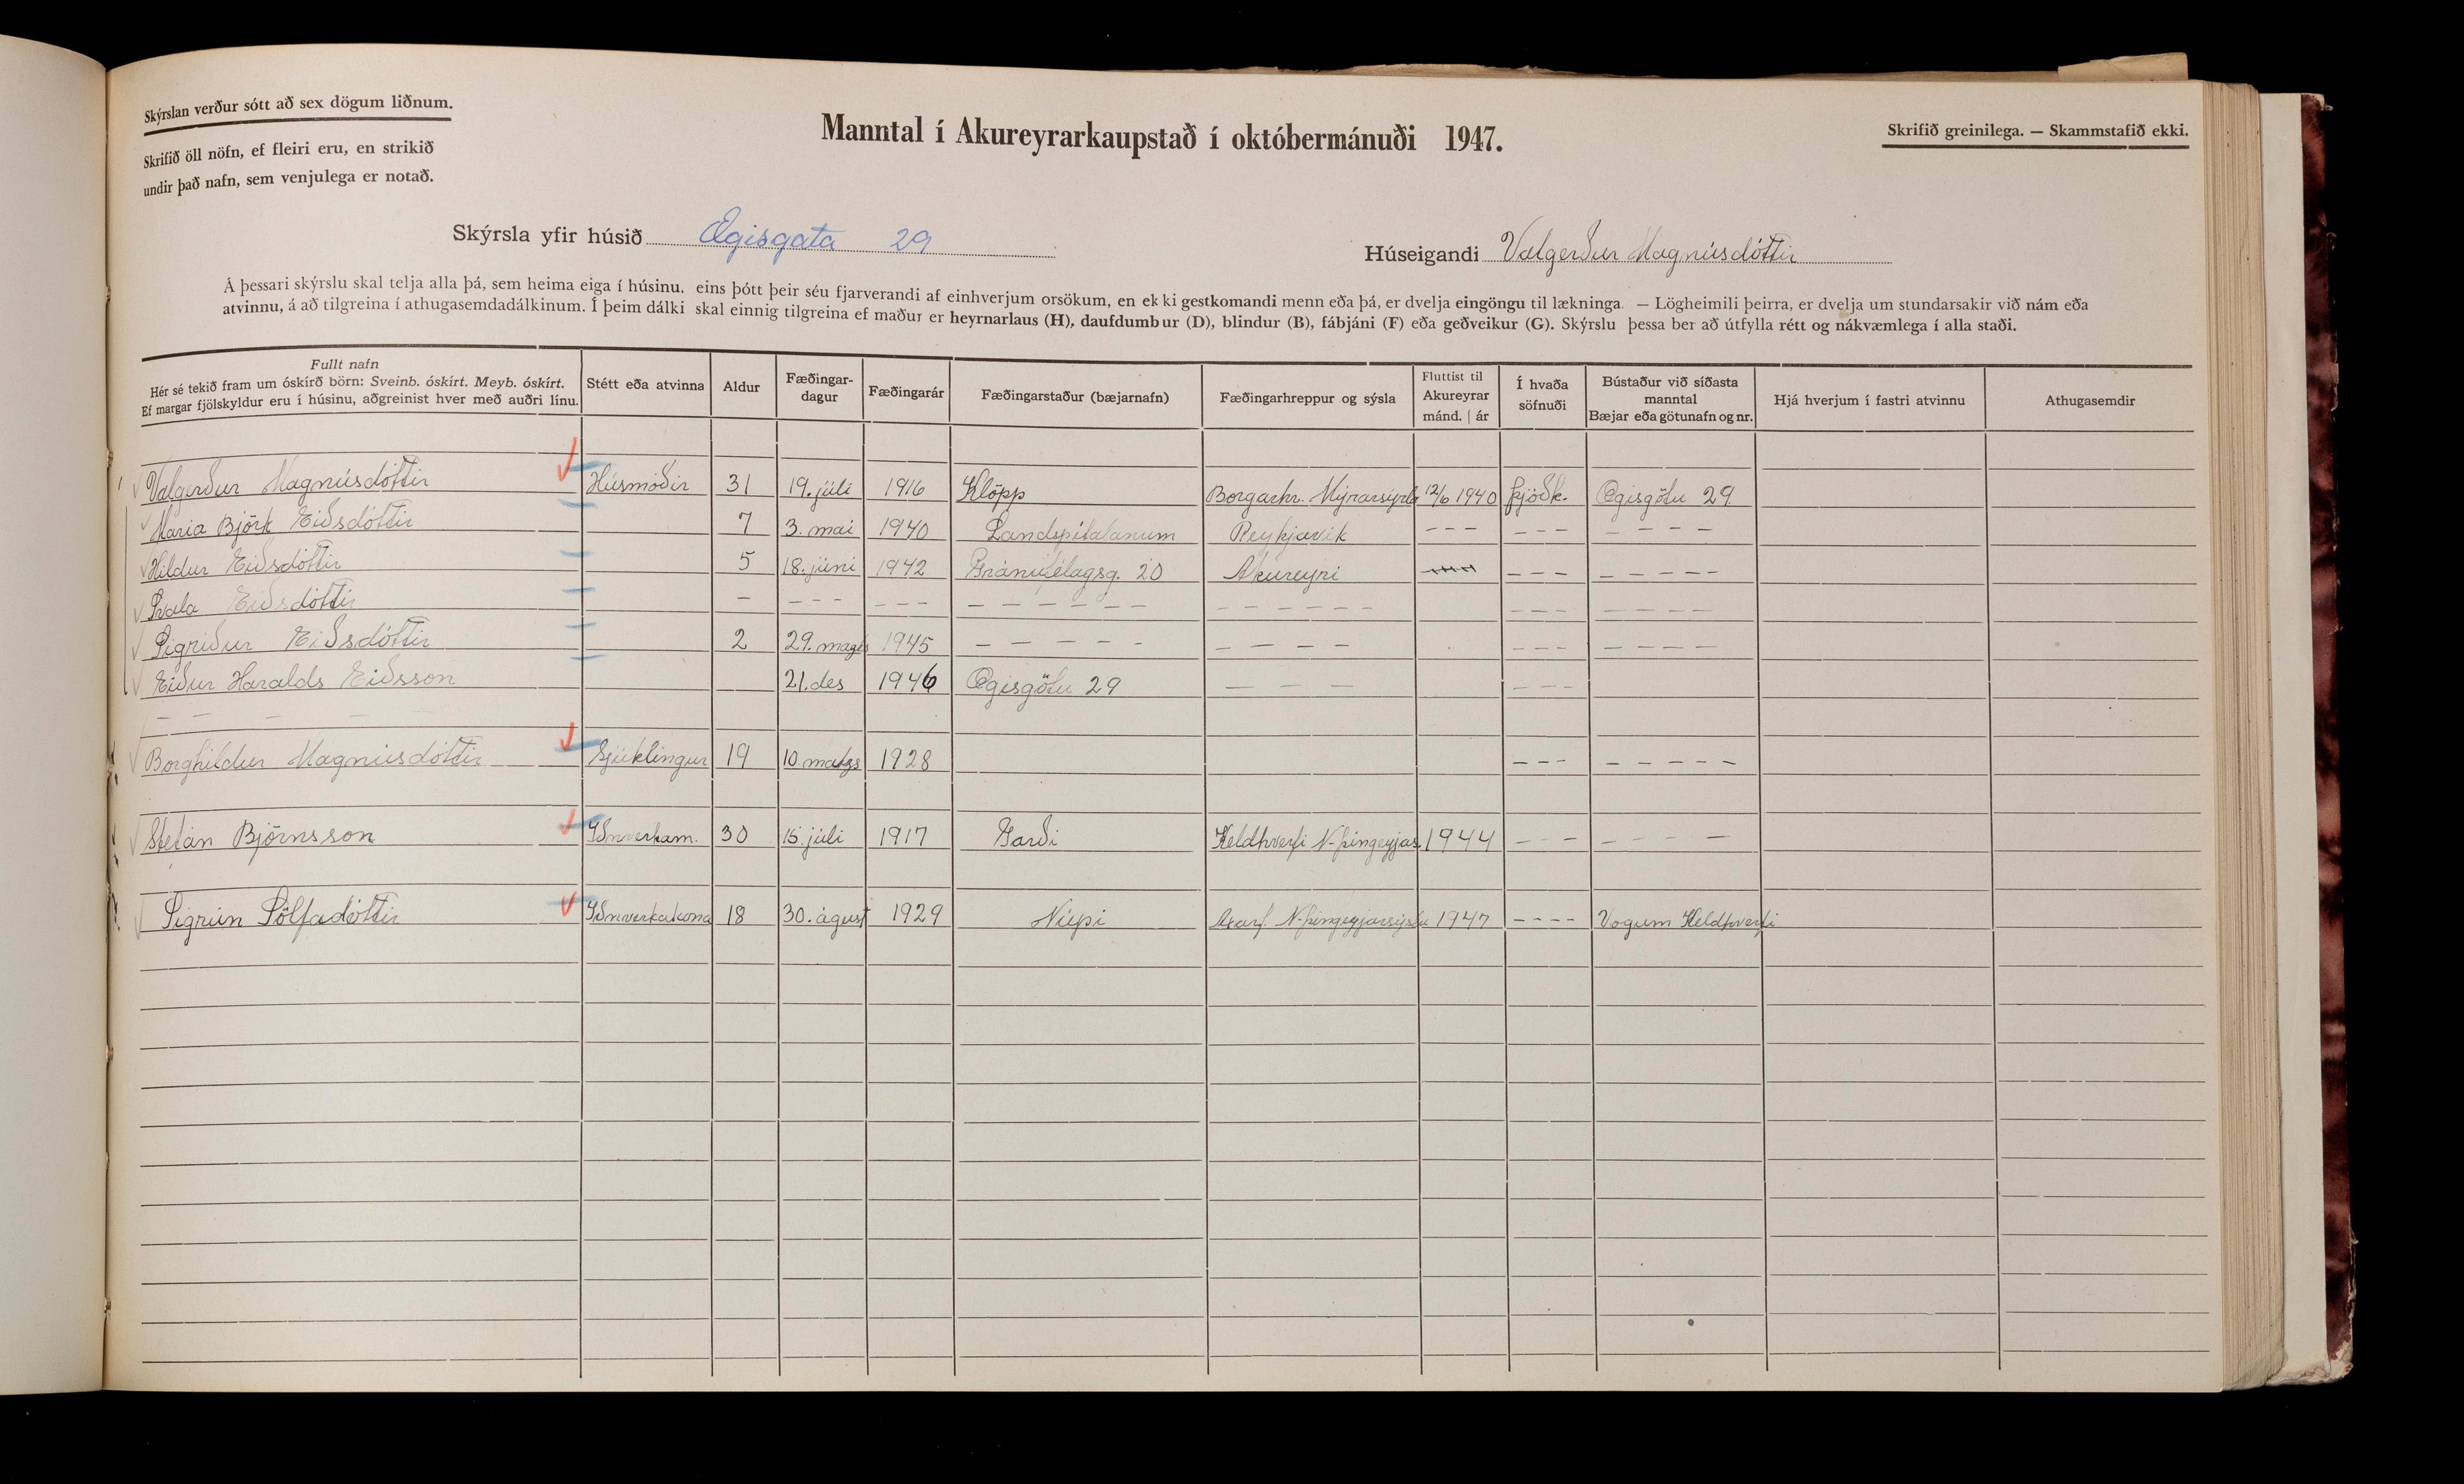 Skýrslan verður sótt að sex dögum liðnum.
Skrifið öll nöfn, ef fleiri eru, en strikið
undir það nafn, sem venjulega er notað.
Manntal í Akureyrarkaupstað í októbermánuði 1947.
Skrifið greinilega. — Skammstafið ekki.
Skýrsla yfir húsið Ægisgata 29
Húseigandi Valgerður Magnúsdóttir
Á þessari skýrslu skal telja alla þá, sem heima eiga í húsinu, eins þótt þeir séu fjarverandi af einhverjum orsökum, en ekki gestkomandi menn eða þá, er dvelja eingöngu til lækninga. — Lögheimili þeirra, er dvelja um stundarsakir við nám eða
atvinnu, á að tilgreina í athugasemdadálkinum. Í þeim dálki skal einnig tilgreina ef maður er heyrnarlaus (H), daufdumbur (D), blindur (B), fábjáni (F) eða geðveikur (G). Skýrslu þessa ber að útfylla rétt og nákvæmlega í alla staði.
Fullt nafn
Hér sé tekið fram um óskírð börn: Sveinb. óskírt. Meyb. óskírt.
Ef margar fjölskyldur eru í húsinu, aðgreinist hver með auðri línu.
Stétt eða atvinna
Aldur
Fæðingar-
dagur
Fæðingarár
Fæðingarstaður (bæjarnafn)
Fæðingarhreppur og sýsla
Fluttist til
Akureyrar
mánd. | ár
Í hvaða
söfnuði
Bústaður við síðasta
manntal
Bæjar eða götunafn og nr.
Hjá hverjum í fastri atvinnu
Athugasemdir
Valgerður Magnúsdóttir Húsmóðir 31 19. júli 1916 Klöpp Borgarhr. Mýrarsýsla 12/6 1940 Þjóðk. Ægisgötu 29
Maria Björk Eiðsdóttir 7 3. mai 1940 Landspítalanum Reykjavík - - - - - - - - - -
Hildur Eiðsdóttir 5 18. júni 1942 Gránufélagsg. 20 Akureyri - - - - - - - -
Svala Eiðsdóttir - - - - - - - - - - - - - - - - - - - - - - - - -
Sigríður Eiðsdóttir 2 29. mars 1945 - - - - - - - - - - - - - - - -
Eiður Haralds Eiðsson 21. des 1946 Ægisgötu 29 - - - - - -
- - - - -
Borghildur Magnúsdóttir Sjúklingur 19 10. mars 1928 - - - - - - - -
Stefán Björnsson Iðnverkam. 30 15. júli 1917 Garði Keldhverfi N-Þingeyjas. 1944 - - - - - -
Sigrún Sölfadóttir Iðnverkakona 18 30. ágúst 1929 Núpi Axarf. N-Þingeyjarsýslu 1947 - - - - Vogum Keldhverfi